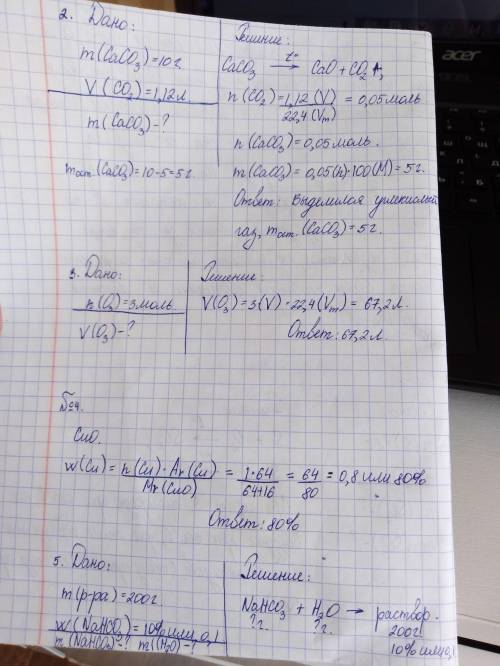 2. Дано:
m(CaCO₃)=10г.
V(CO₂)=1,12л.
m(CaCO₃)-?
mост.(CaCO₃)=10-5=5г
Решение:
CaCO₃ —t°→ CaO+CO₂↑
n(CO₂)=1,12(V)/22,4(Vm) = 0,05моль
n(CaCO₃)=0,05моль.
m(CaCO₃)=0,05(n)·100(M)=5г.
Ответ: Выделился углекислый
газ, mост.(CaCO₃)=5г.
3. Дано:
n(O₃)=3моль.
V(O₃)-?
Решение:
V(O₃)=3(V)·22,4(Vm)=67,2л.
Ответ: 67,2л.
№4.
CuO.
w(Cu)= n(Cu)·Ar(Cu)/Mr(CuO) = 1·64/64+16 = 64/80 = 0,8 или 80%
Ответ: 80%
5. Дано:
m(р-ра)=200г.
w(NaHCO₃)=10% или 0,1
m(NaHCO₃)-? m(H₂O)-?
Решение:
NaHCO₃ + H₂O → раствор.
?г. ?г. 200г
10% или 0,1
acer